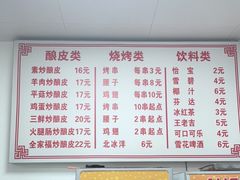 酿皮类
素炒酿皮 16元
羊肉炒酿皮 17元
平菇炒酿皮 17元
鸡蛋炒酿皮 17元
三鲜炒酿皮 20元
火腿肠炒酿皮 17元
全家福炒酿皮 22元
烧烤类
烤串 每串3元
腰子 每串8元
鸡翅 每串10元
烤串 10串起点
腰子 2串起点
鸡翅 2串起点
北冰洋 6元
饮料类
怡宝 2元
雪碧 4元
椰汁 6元
芬达 4元
冰红茶 3元
王老吉 5元
可口可乐 4元
雪花啤酒 6元